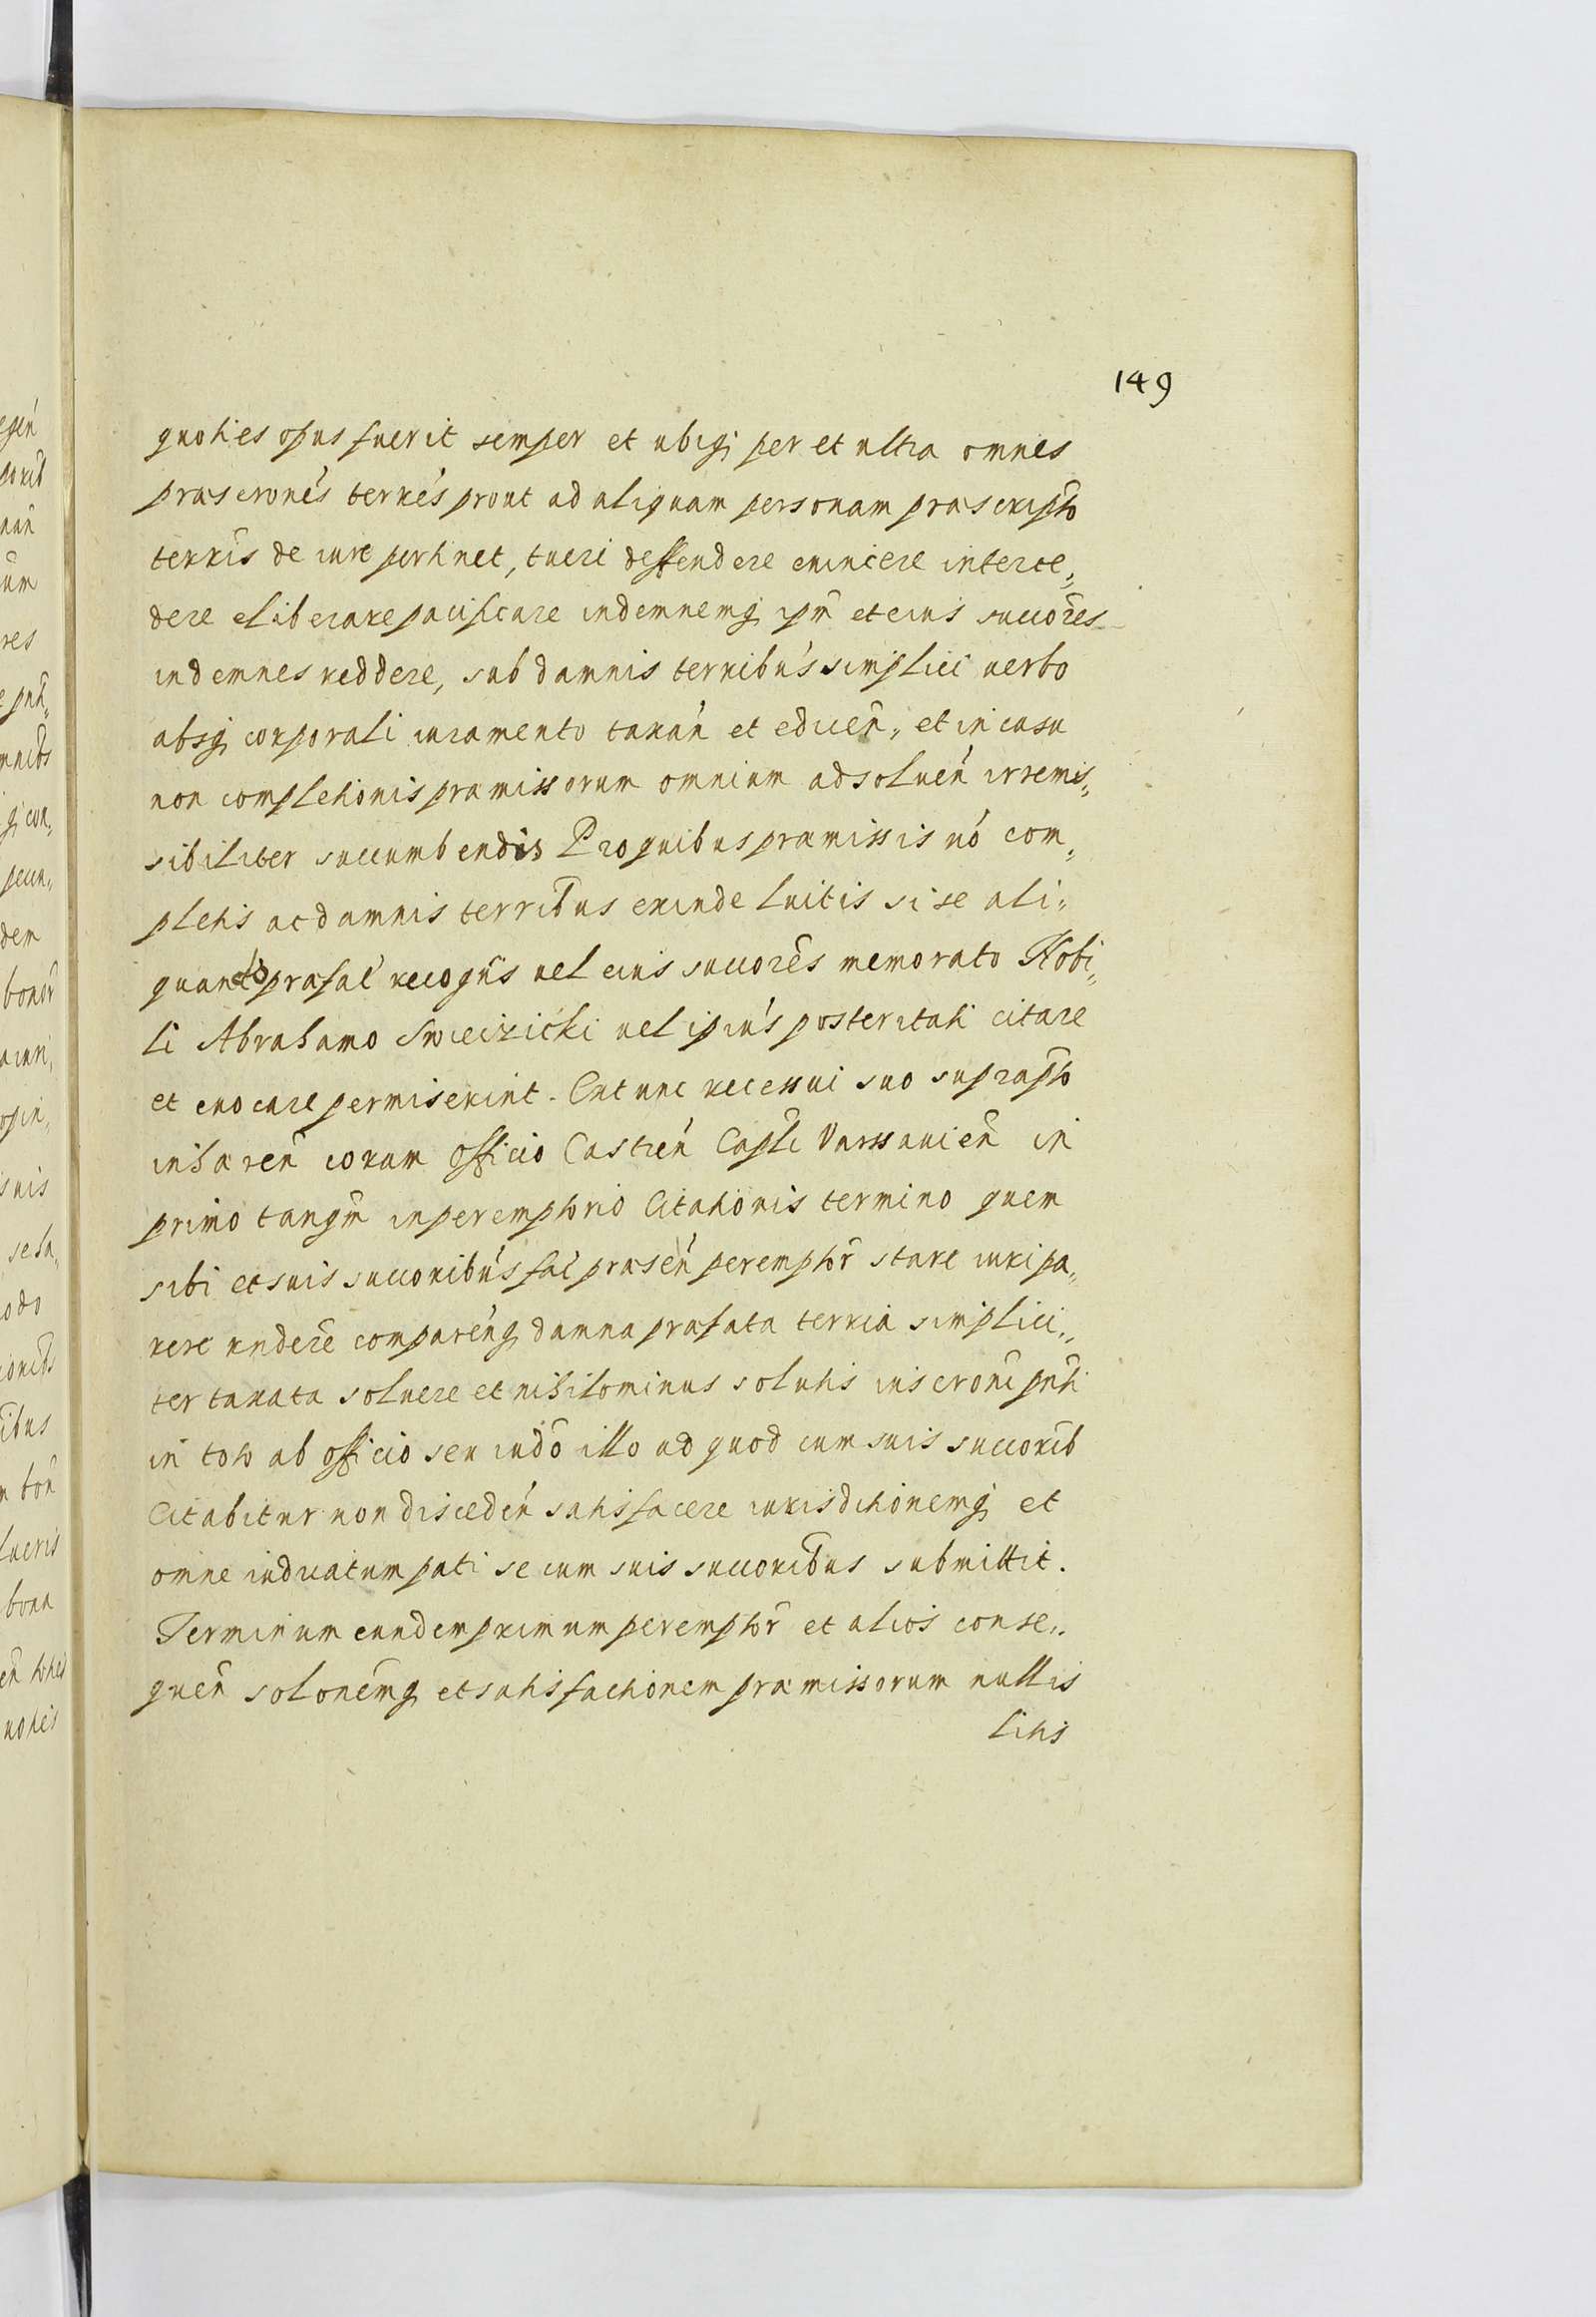 149
quoties opus fuerit semper et ubiq; per et ultra omnes
præscronés terrés prout ad aliquam personam præscripto
terris de iure pertinet, tueri deffendere euincere interce„
dere eliberare pacificare indemnemq; ipm̃ et eius succorẽs
indemnes reddere, sub damnis terribús simplici uerbo
absq; corporali iuramento taxán et educeñ, et in casu
non completionis præmissorum omnium ad soluén irremis„
sibiliter succumbendis Pro quibus præmissis nó com„
pletis ac damnis terribus exinde luitis si se ali„
quando præfaé recogñs uel eius succorẽs memorato Nobi„
li Abrahamo Swieizicki uel ipiús posteritati citare
et euocare permiserint. Extunc recessui suo suprapto
inhæreñ coram Officio Castrén Capli Varssauieñ in
primo tanqm̃ in peremptorio Citationis termino quem
sibi et suis succoribús faé præsén peremptor̃ stare iuri pa„
rere rñdere comparénq; damna præfata terria simplici„
ter taxata soluere et nihilominus solutis inscroni pñti
in toto ab officio seu iudõ illo ad quod cum suis succorib
Citabitur non discedén satisfacere iurisditionemq; et
omne iudicatum pati se cum suis succoribus submittit.
Terminum eundem primum peremptor̃ et alios conse„
queñ solonemq; et satisfactionem præmissorum nullis
litis